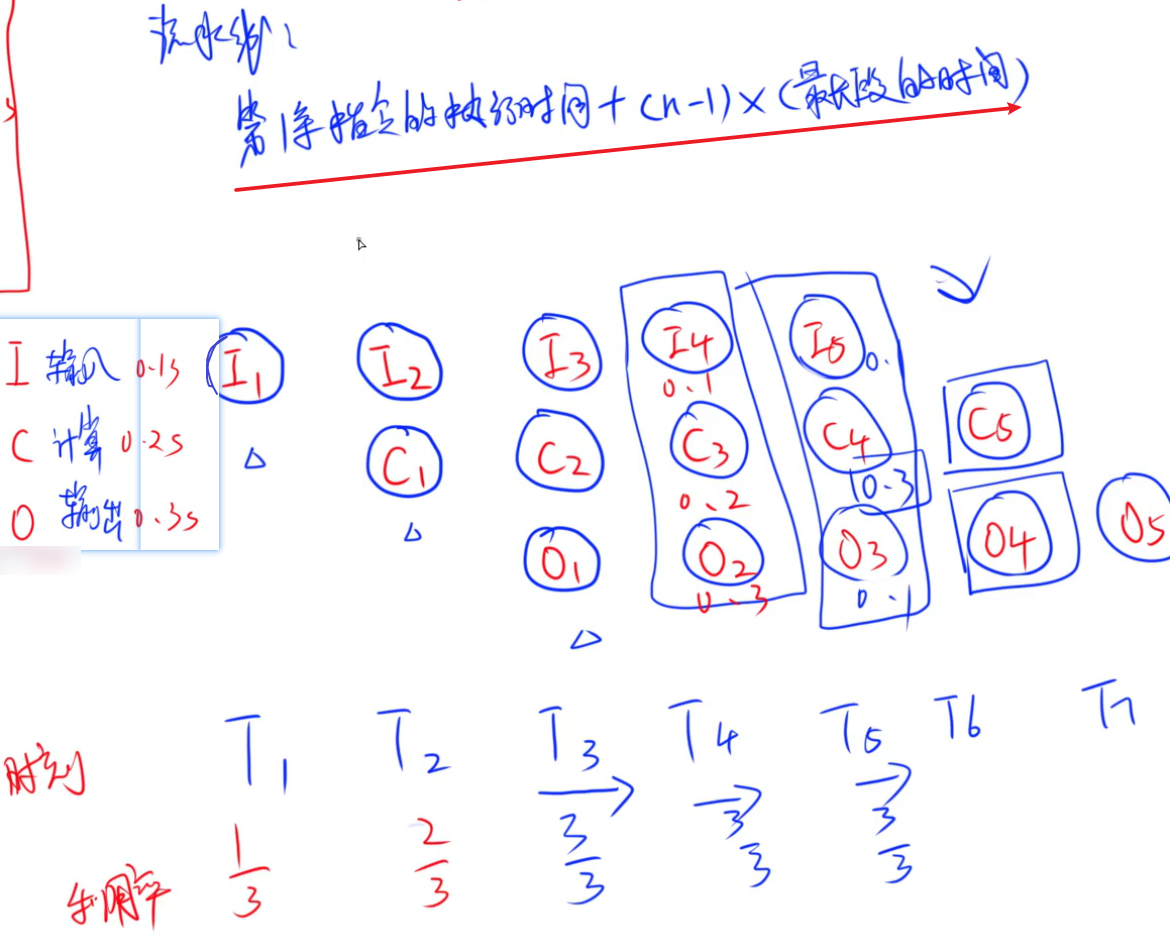 流水线:
第1条指令的执行时间+(n-1)×(最长段的时间)
I 输入 0.1s
C 计算 0.2s
O 输出 0.3s
I1 I2 I3 I4 I5
0.1 0.
C1 C2 C3 C4 C5
0.2 0.3
O1 O2 O3 O4 O5
0.3 0.1
时刻 T1 T2 T3 T4 T5 T6 T7
利用率 1/3 2/3 3/3 3/3 3/3